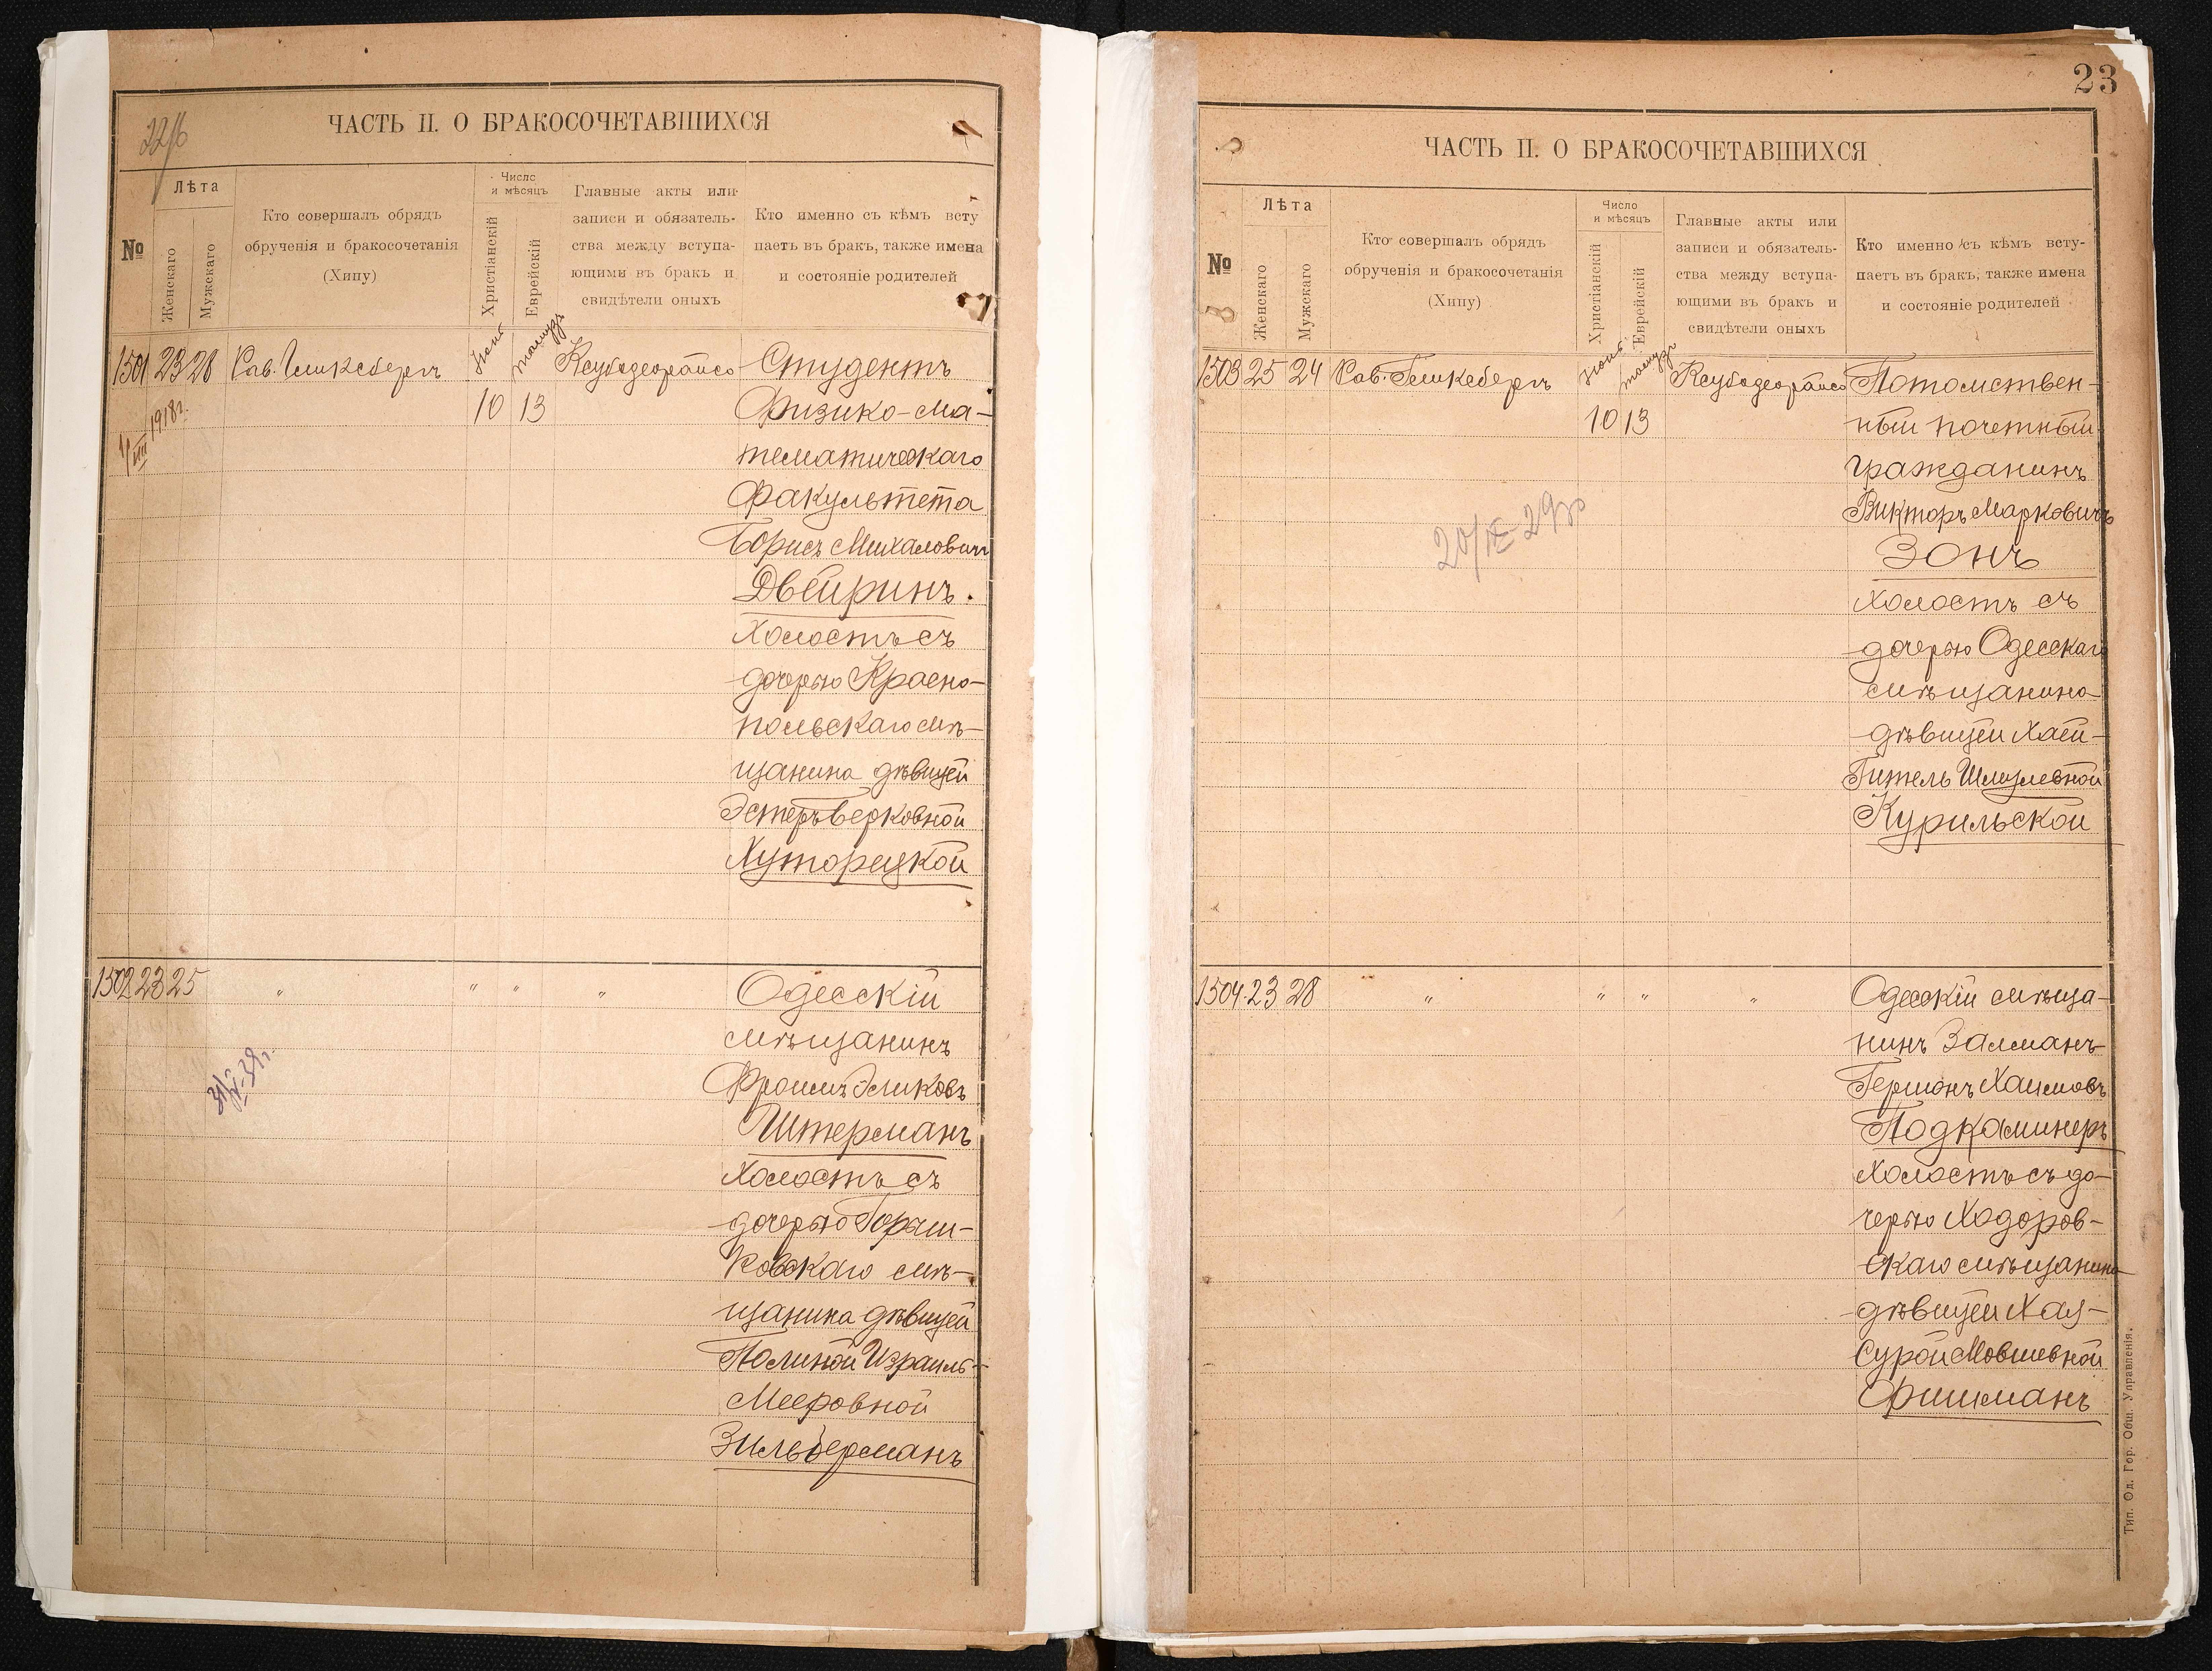 ЧАСТЬ II. О БРАКОСОЧЕТАВШИХСЯ
№
Лѣта
Женскаго
Мужскаго
Кто совершалъ обрядъ
обрученія и бракосочетанія
(Хипу)
Число
и мѣсяцъ
Христіанскій
Еврейскій
Главные акты или
записи и обязатель-
ства между вступа-
ющими въ бракъ и
свидѣтели оныхъ
Кто именно съ кѣмъ всту
паетъ въ бракъ, также имена
и состояніе родителей
1501 23 28 Рав. Гликсбергъ 10 13 Студентъ
1918 г.
Физико-ма-
тематическаго
Факультета
Борисъ Михаловичъ
Двейринъ.
Холостъ съ
дочерью Красно-
польскаго мѣ-
щанина дѣвицей
Эстеръ Берковной
Хуторецкой
1502 23 25 " " " " Одесскій
мѣщанинъ
Фроимъ Эликовъ
Штерманъ
Холостъ съ
дочерью Горыш-
ковскаго мѣ-
щанина дѣвицей
Полиной Израиль-
Мееровной
Зильберманъ
23
ЧАСТЬ II. О БРАКОСОЧЕТАВШИХСЯ
№
Лѣта
Женскаго
Мужскаго
Кто совершалъ обрядъ
обрученія и бракосочетанія
(Хипу)
Число
и мѣсяцъ
Христіанскій
Еврейскій
Главные акты или
записи и обязатель-
ства между вступа-
ющими въ бракъ и
свидѣтели оныхъ
Кто именно съ кѣмъ всту-
паетъ въ бракъ, также имена
и состояніе родителей
1503 25 24 Рав. Гликсбергъ 10 13 Потомствен-
ный почетный
гражданинъ
Викторъ Марковичъ
Зонъ
холостъ съ
дочерью Одесскаго
мѣщанина
дѣвицей Хай-
Гитель Шмулевной
Курильской
1504 23 28 " " " " Одесскій мѣща-
нинъ Залманъ-
Гершонъ Хаимовъ
Подкаминеръ
холостъ съ до-
черью Ходоров-
скаго мѣщанина
дѣвицей Хая-
Сурой Мовшевной
Фишманъ
Тип. Од. Гор. Общ. Управленія.